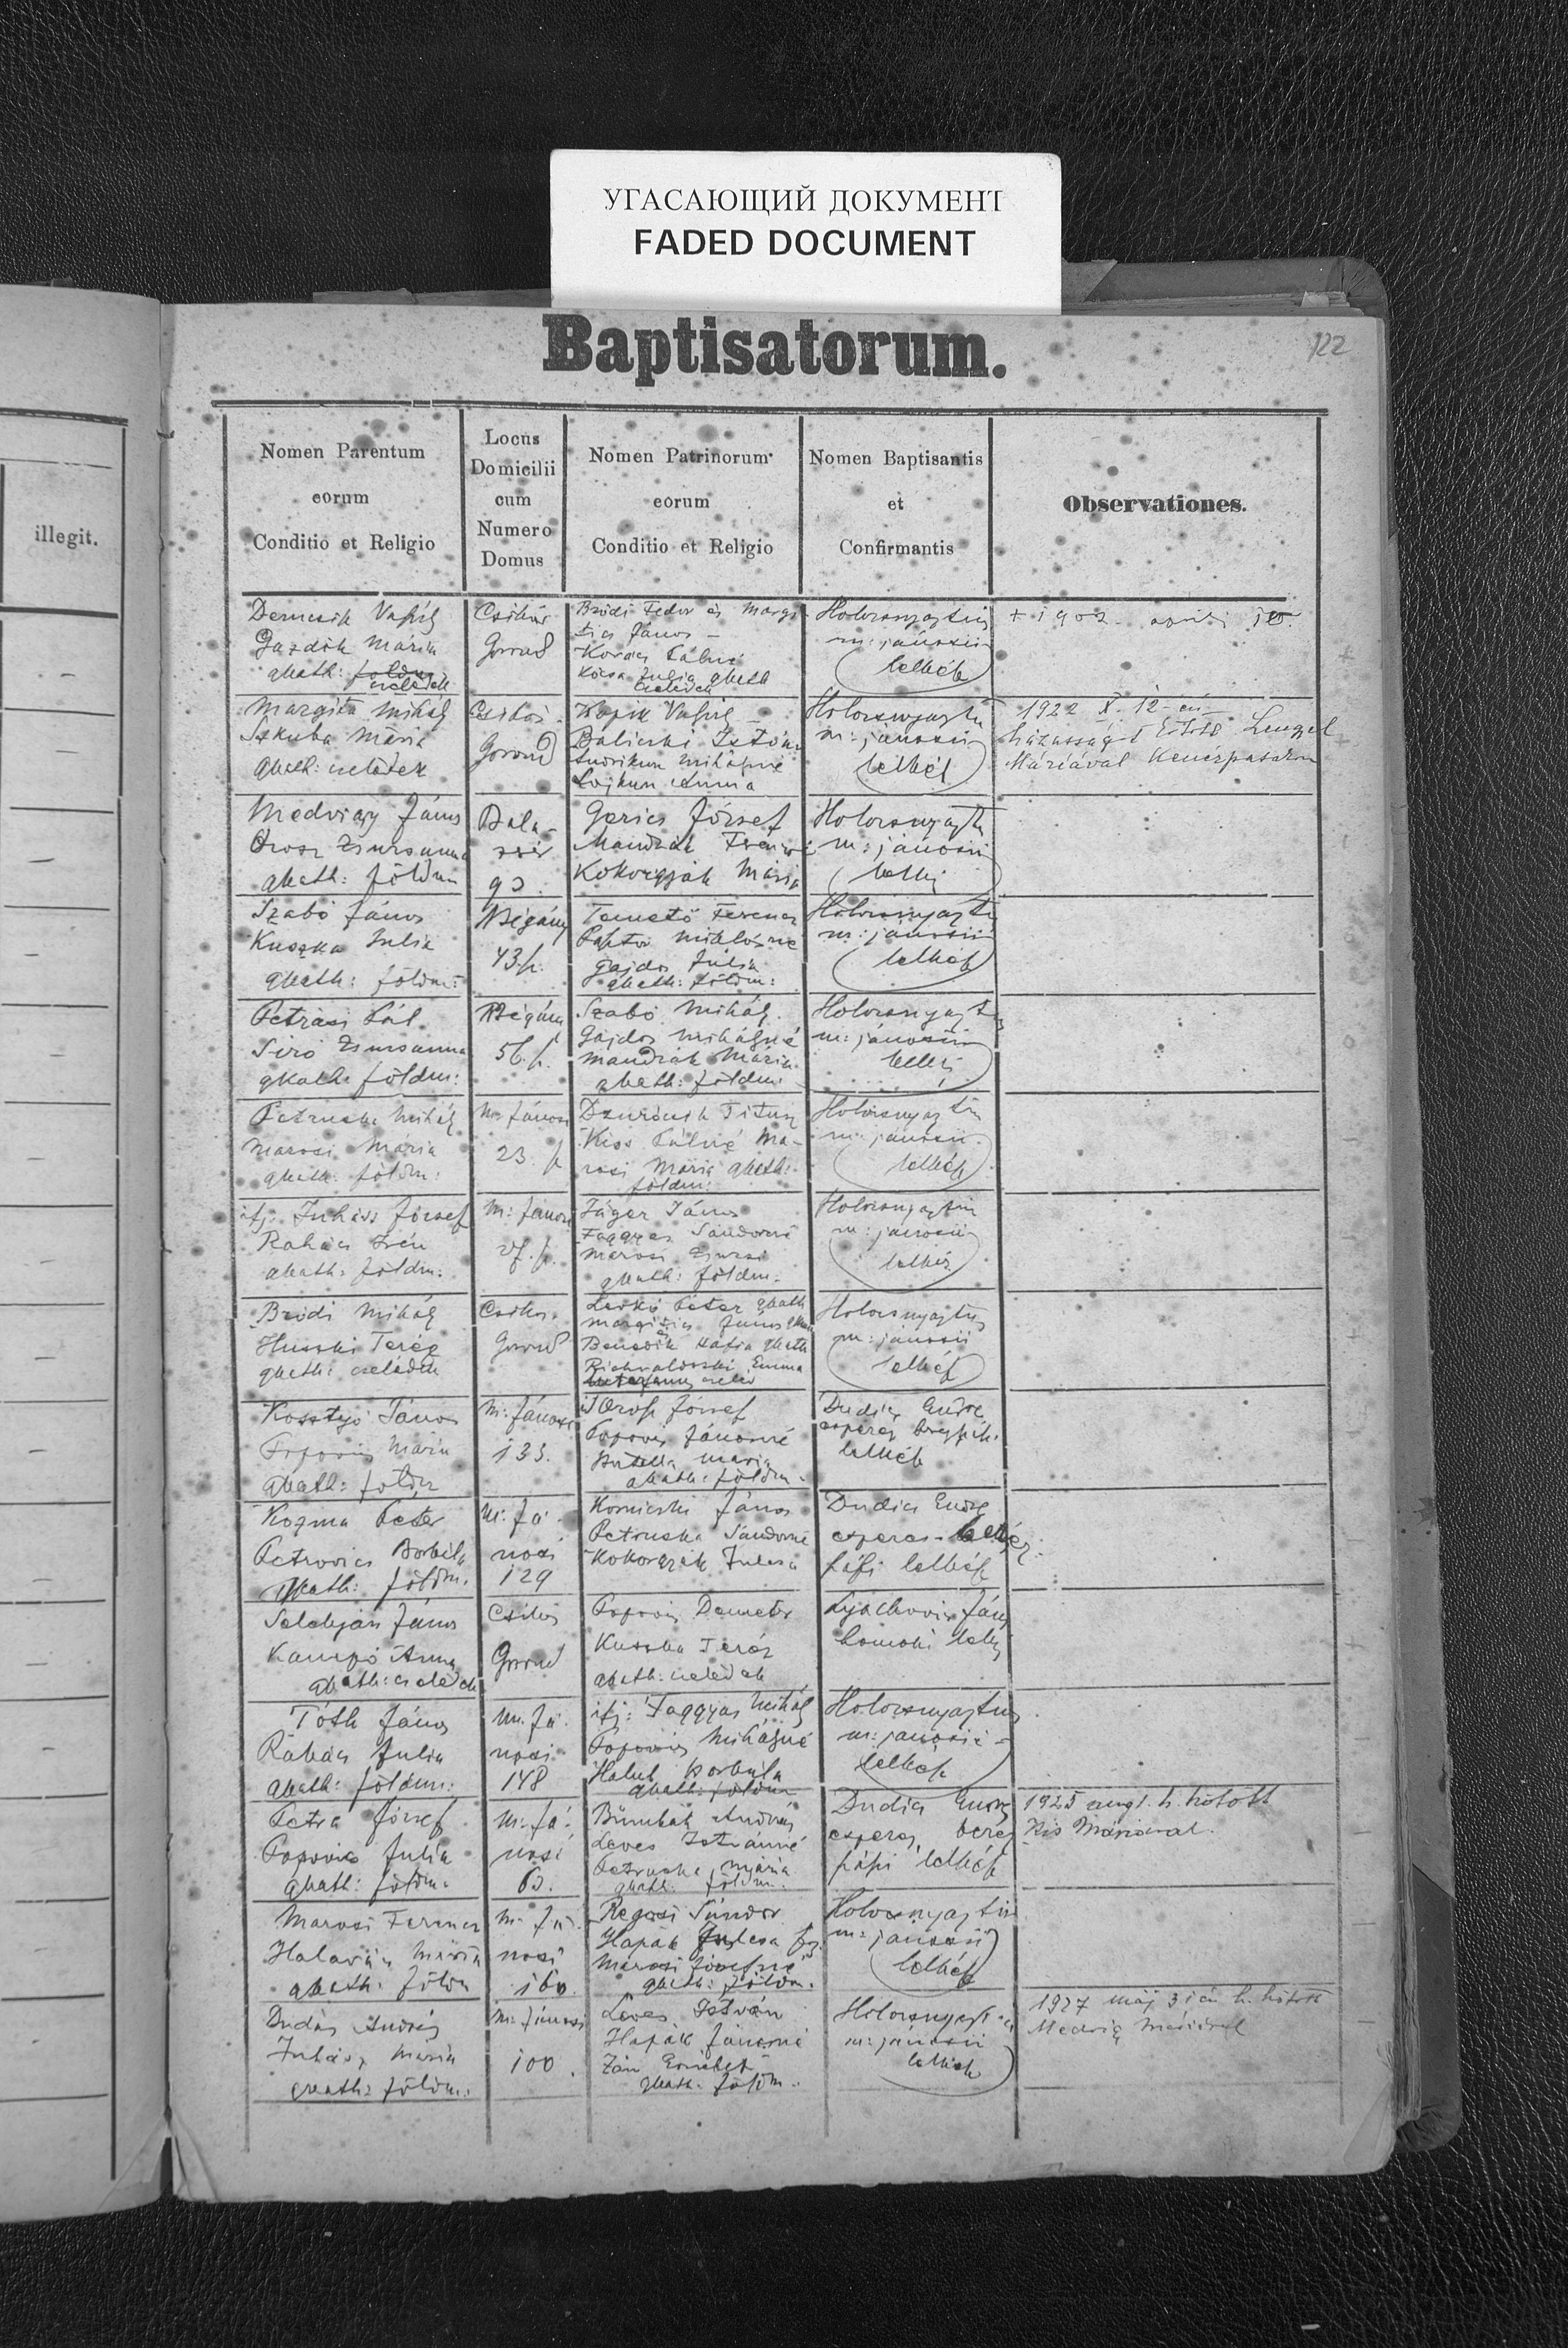 УГАСАЮЩИЙ ДОКУМЕНТ
FADED DOCUMENT
Baptisatorum.
122
illegit.
Nomen Parentum
eorum
Conditio et Religio
Locus
Domicilii
cum
Numero
Domus
Nomen Patrinorum
eorum
Conditio et Religio
Nomen Baptisantis
et
Confirmantis
Observationes.
Demcsik Vaszil
Gazdik Mária
gkath:
cselédek
Csikós
Gorond
Bródi Fedor és Margi-
tics János -
Kovács Pálné
Kócsa Julia gkath
cselédek
Holocsnyay
m: jánosii
lelkész
+ 1902. április
Margita Mihály
Szkuba Mária
gkath: cselédek
Csikós.
Gorond
Kopik Vaszil -
Balicski István
Mihályné
Anna
Holocsnyay
m: jánosii
lelkész
1922 X. 12-én
házasságot
Máriával
Medvigy János
Orosz Zsuzsanna
gkath: földm
Bala-
zsér
90.
Gerics József
Mandzák
Kokorgyák Mária
Holocsnyay
m: jánosii
lelkész
Szabó János
Kuszka Julia
gkath: földm:
NBégány
43 h.
Temető Ferencz
Miklósné
Gajdos Julia
gkath: földm:
Holocsnyay
m: jánosii
lelkész
Petrási Pál
Siró Zsuzsanna
gkath: földm:
NBégány
56. h.
Szabó Mihály.
Gajdos Mihályné
Mandzák Mária
gkath: földm:
Holocsnyay
m: jánosii
lelkész
Petruska Mihály
Marosi Mária
gkath: földm:
M: Jánosi
23. h
Titusz
Kiss Pálné Ma-
rosi Mária gkath:
földm:
Holocsnyay
m: jánosii
lelkész
ifj: Juhász József
Rahács Irén
gkath: földm:
M: Jánosi
27. h.
Jáger János
Faggyas Sándorné
Marosi Zsuzsi
gkath: földm.
Holocsnyay
m: jánosii
lelkész
Bródi Mihály
Huszki Teréz
gkath: cselédek
Csikós.
Gorond
Leskó Péter gkath
Margitics János
és
Benedek gkath
Emma
Holocsnyay
m: jánosii
lelkész
Kosztyó János
Popovics Mária
gkath: földm
M: Jánosi
133.
József
Popovics Jánosné
Mária
gkath: földm.
Dudics Endre
esperes
lelkész
Kozma Péter
Petrovics Borbála
gkath: földm.
M: Já-
nosi
129
Kornicski János
Petruska Sándorné
Kokorgyák Julcsa
Dudics Endre
esperes
pápi lelkész
János
Kampó Anna
gkath: cselédek
Csikós
Gorond
Popovics Demeter
Kuszka Teréz
gkath: cselédek
Lyachovics János
lelkész
Tóth János
Rahács Julia
gkath: földm:
M: Já.
nosi
148
ifj: Faggyas Mihály
Popovics Mihályné
Halus Borbála
gkath: földm
Holocsnyay
m: jánosii
lelkész
Petra József
Popovics Julia
gkath: földm.
M: Já-
nosi
60.
András
Leves Istvánné
Petruska Mária
gkath: földm:
Dudics Endre
esperes bereg
pápi lelkész
1925 aug 1. h. kötött
Kis Máriával.
Marosi Ferencz
Mária
gkath: földm
M: Já.
nosi
160.
Regosi Sándor
Hapák Julcsa
Marosi Józsefné
gkath: földm.
Holocsnyay
m: jánosii
lelkész
Dudás András
Juhász Mária
gkath: földm.
M: Jánosi
100.
Leves István
Hapák Jánosné
Zán Erzsébet
gkath. földm.
Holocsnyay
m: jánosii
lelkész
1927 máj 3 án h. kötött
Medvigy Máriával